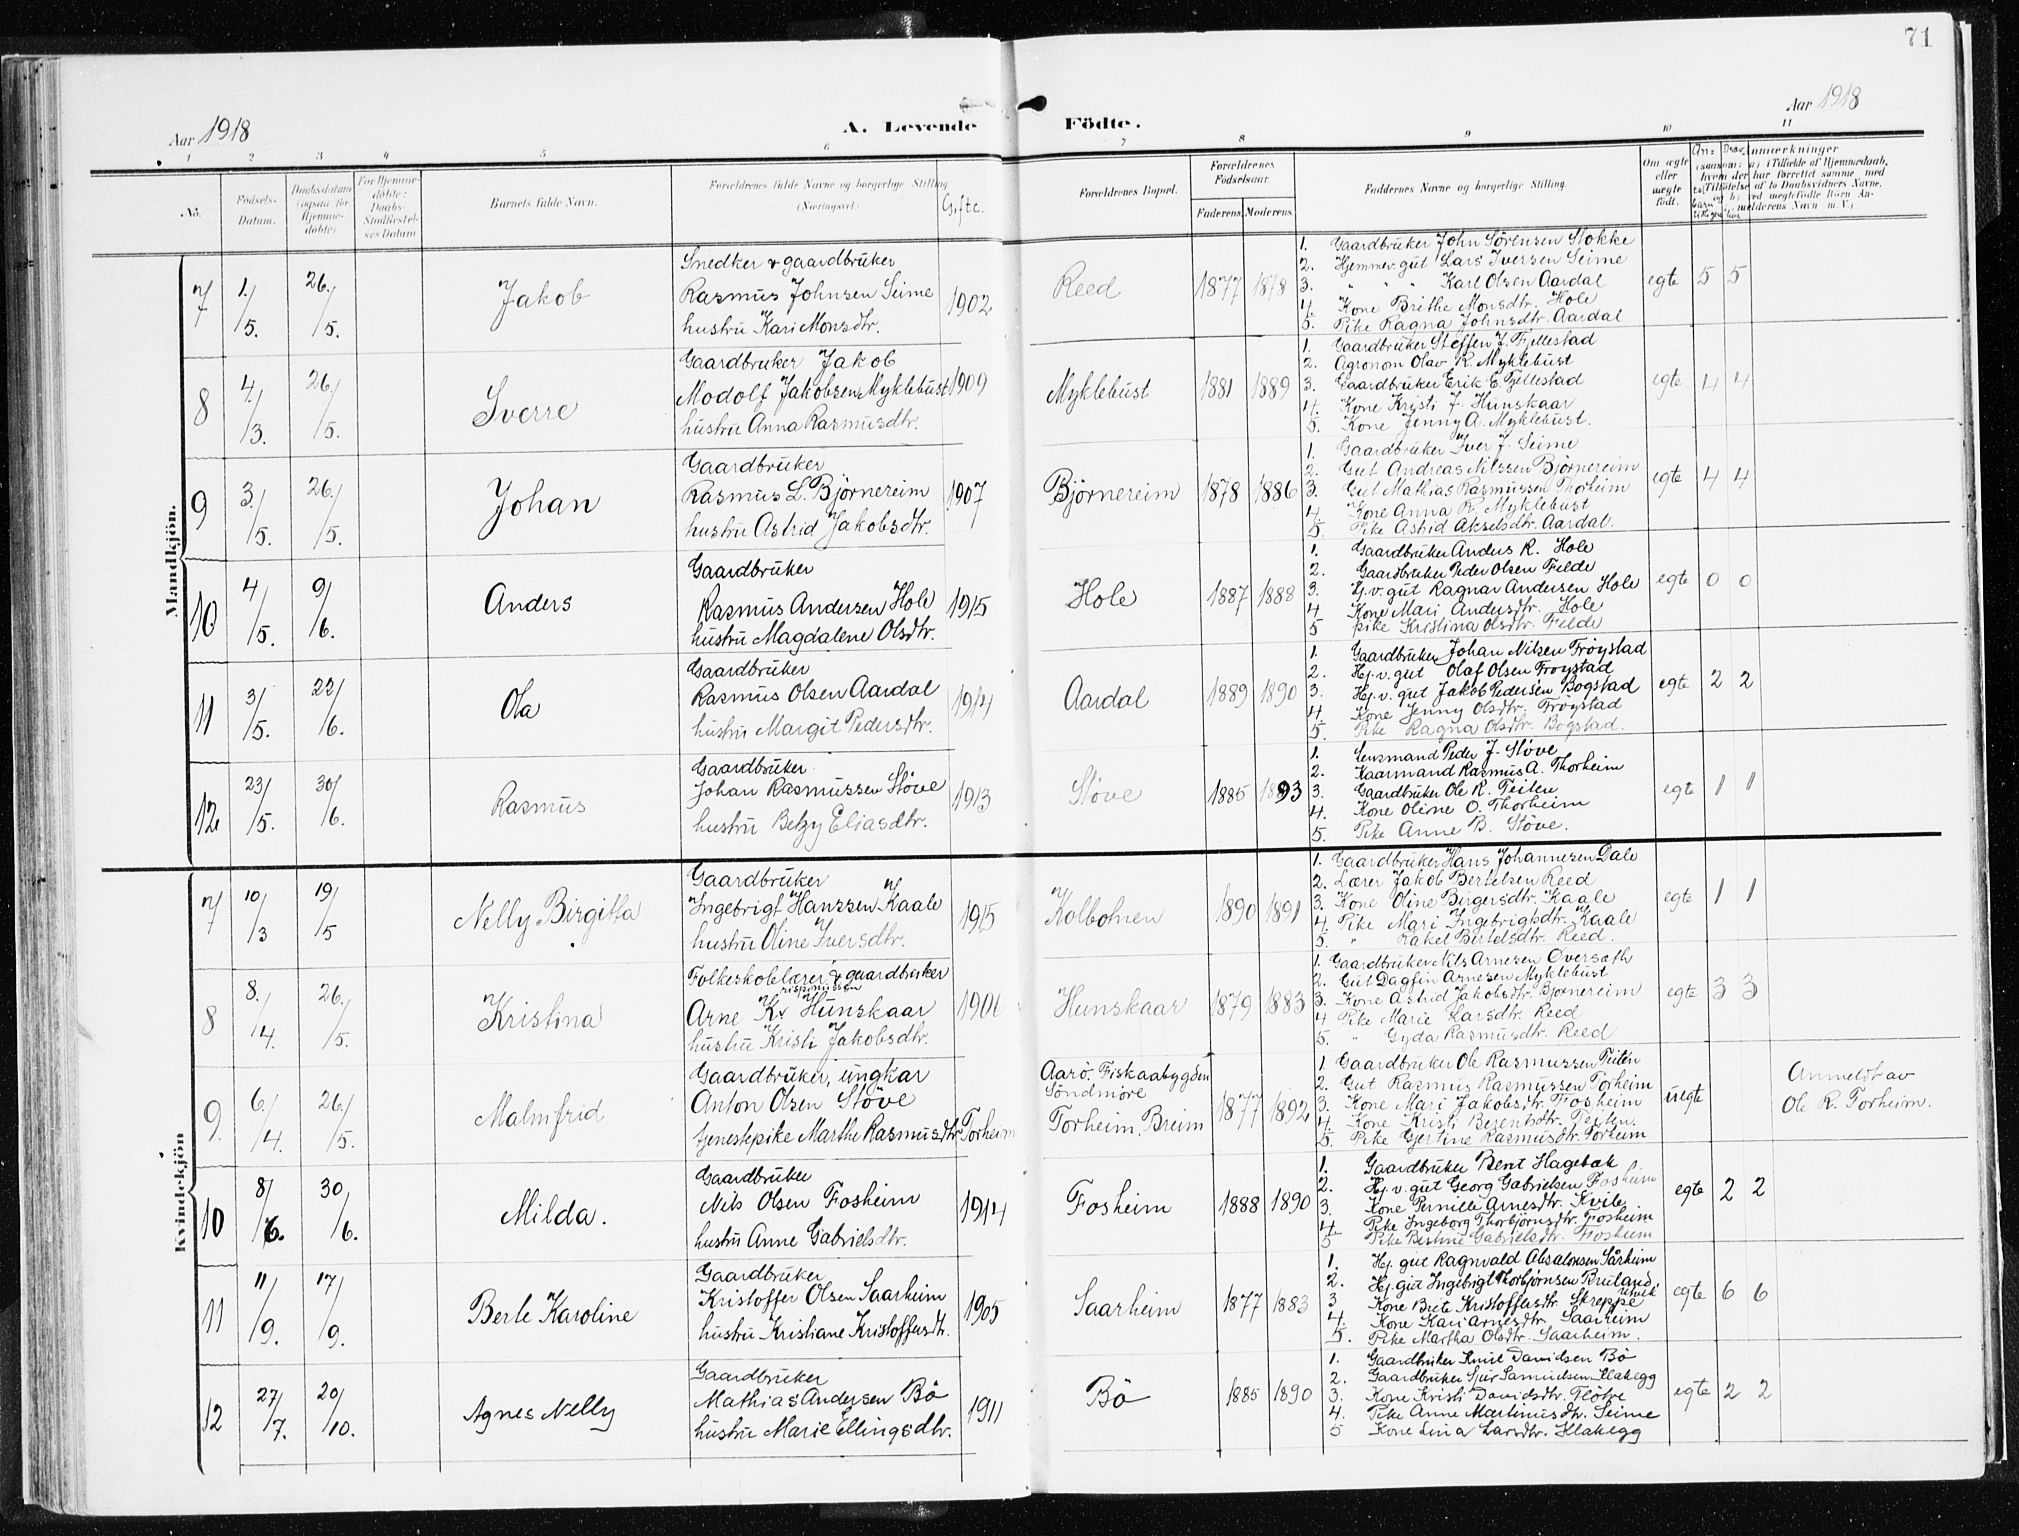 71
Aar 1918
A. Levende Födte.
Aar 1918
1 2 3 4 5 6 7 8 9 10 11
No.
Födsels-Datum.
Daabsdatum (ogsaa for Hjemmedöbte)
For Hjemmedöbte: Daabs-Stadfæstelses Datum
Barnets fulde Navn.
Forældrenes fulde Navne og borgerlige Stilling (Næringsvei.)
Gifte.
Forældrenes Bopæl.
Forældrenes Födselsaar.
Faderens. Moderens.
Faddernes Navne og borgerlige Stilling.
Om ægte eller uægte födt.
Mandkjön.
7 1./5. 26./5. Jakob
Snedker & gaardbruker
Rasmus Johnsen Seime
hustru Kari Monsdtr.
1902 Reed 1877 1878
1. Gaardbruker John Sörensen Stokke
2. Hjemmev. gut Lars Iversen Seime
3. " " " Karl Olsen Aardal
4. Kone Brithe Monsdtr. Hole
5. Pike Ragna Johnsdtr. Aardal
egte 5 5
8 4./3. 26./5. Sverre
Gaardbruker Jakob
Modolf Jakobsen Myklebust
hustru Anna Rasmusdtr.
1909 Myklebust 1881 1889
1. Gaardbruker Steffen J. Fjellestad
2. Agronom Olav R. Myklebust
3. Gaardbruker Erik E. Fjellestad
4. Kone Kristi J. Hunskaar
5. Kone Jenny A. Myklebust.
egte 4 4
9 3./5. 26./5. Johan
Gaardbruker
Rasmus L. Björnereim
hustru Astrid Jakobsdtr.
1907 Björnereim 1878 1886
1. Gaardbruker Iver J. Seime
2. Gut Andreas Nilssen Björnereim
3. Gut Mathias Rasmussen Thorheim
4. Kone Anna R. Myklebust
5. Pike Astrid Akselsdtr. Aardal.
egte 4 4
10 4/5. 9/6. Anders
Gaardbruker
Rasmus Andersen Hole
hustru Magdalene Olsdtr.
1915 Hole 1887 1888
1. Gaardbruker Anders R. Hole
2. Gaardbruker Peder Olsen Felde
3. Hj.v. gut Ragnar Andersen Hole
4. Kone Mari Andersdtr. Hole
5 pike Kristina Olsdtr. Felde
egte 0 0
11 3/5. 22/6. Ola
Gaardbruker
Rasmus Olsen Aardal
hustru Margit Pedersdtr.
1914 Aardal 1889 1890
1. Gaardbruker Johan Nilsen Fröystad
2. Hj. v. gut Olaf Olsen Fröystad
3. Hj. v. gut Jakob Pedersen Bogstad
4. Kone Jenny Olsdtr. Fröystad
5. Pike Ragna Olsdtr. Bogstad.
egte 2 2
12 23/5. 30/6. Rasmus
Gaardbruker
Johan Rasmussen Stöve
hustru Betzy Eliasdtr.
1913 Stöve 1885 1893
1. Lensmand Peder J. Stöve
2. Kaarmand Rasmus A. Thorheim
3. Gaardbruker Ole R. Teiten
4. Kone Oline O. Thorheim
5. Pike Anne B. Stöve.
egte 1 1
Kvindekjön
7 10/3 19/5 Nelly Birgitta
Gaardbruker
Ingebrigt Hanssen Kaale
hustru Oline Iversdtr.
1915 Kolbotnen 1890 1891
1. Gaardbruker Hans Johannesen Dale
2. Lærer Jakob Bertelsen Reed
3. Kone Oline Birgersdtr. Kaale
4. Pike Mari Ingebrigtsdtr. Kaale
5. " Rakel Bertelsdtr. Reed.
egte 1 1
8 8./4. 26./5. Kristina
Folkeskolelærer & gaardbruker
Arne Kr Hunskaar
hustru Kristi Jakobsdtr.
1906 Hunskaar 1879 1883
1. Gaardbruker Nils Arnesen Oversæth
2. Gut Dagfin Arnesen Myklebust
3. Kone Astrid Jakobsdtr. Bjornereim
4 Pike Marie Larsdtr. Reed
5. " Gyda Rasmusdtr. Reed
egte 3 3
9. 6./4. 26./5. Malmfrid
Gaardbruker, ungkar
Anton Olsen Stöve
tjenestepike Marthe Rasmusdtr. Torheim
Aarö. Fiskaabygden
Söndmöre
Torheim, Breim
1877 1892
1 Gaardbruker Ole Rasmussen Teiten
2. Gut Rasmus Rasmussen Torheim
3. Kone Mari Jakobsdtr. Fosheim
4. Kone Kristi Berentsdtr. Teiten.
5. Pike Gjertine Rasmusdtr. Torheim
uegte
Anmeldt av
Ole R. Torheim.
10 8/6. 30/6. Milda.
Gaardbruker
Nils Olsen Fosheim
hustru Anne Gabrielsdtr.
1914 Fosheim 1888 1890
1. Gaardbruker Bent Hagebak
2. Hj. v. gut Georg Gabrielsen Fosheim
3. Kone Pernille Arnesdtr. Kvile
4. Pike Ingeborg Thorbjörnsdtr. Fosheim
5 Pike Bertine Gabrielsdtr. Fosheim
egte 2 2
11 11/9. 17/9. Berte Karoline
Gaardbruker
Kristoffer Olsen Saarheim
hustru Kristiane Kristoffersdtr.
1905 Saarheim 1877 1883
1. Hj. gut Ragnvald Absalonsen Sårheim
2. Hj. gut Ingebrigt Thorbjörnsen Bruland,
3 Kone Brite Kristoffersdtr. Skreppe
4. Kone Kari Arnesdtr. Saarheim
5. Pike Martha Olsdtr. Saarheim.
egte 6 6
12 27/7. 20/10. Agnes Nelly
Gaardbruker
Mathias Andersen Bö
hustru Marie Ellingsdtr.
1911 Bö 1885 1890
1. Gaardbruker Knut Davidsen Bö
2. Gaardbruker Sjur Samuelsen Flakegg
3. Kone Kristi Davidsdtr. Flötre
4. Pike Anne Martinusdtr. Seime
5 Kone Lina Larsdtr. Flakegg
egte 2 2